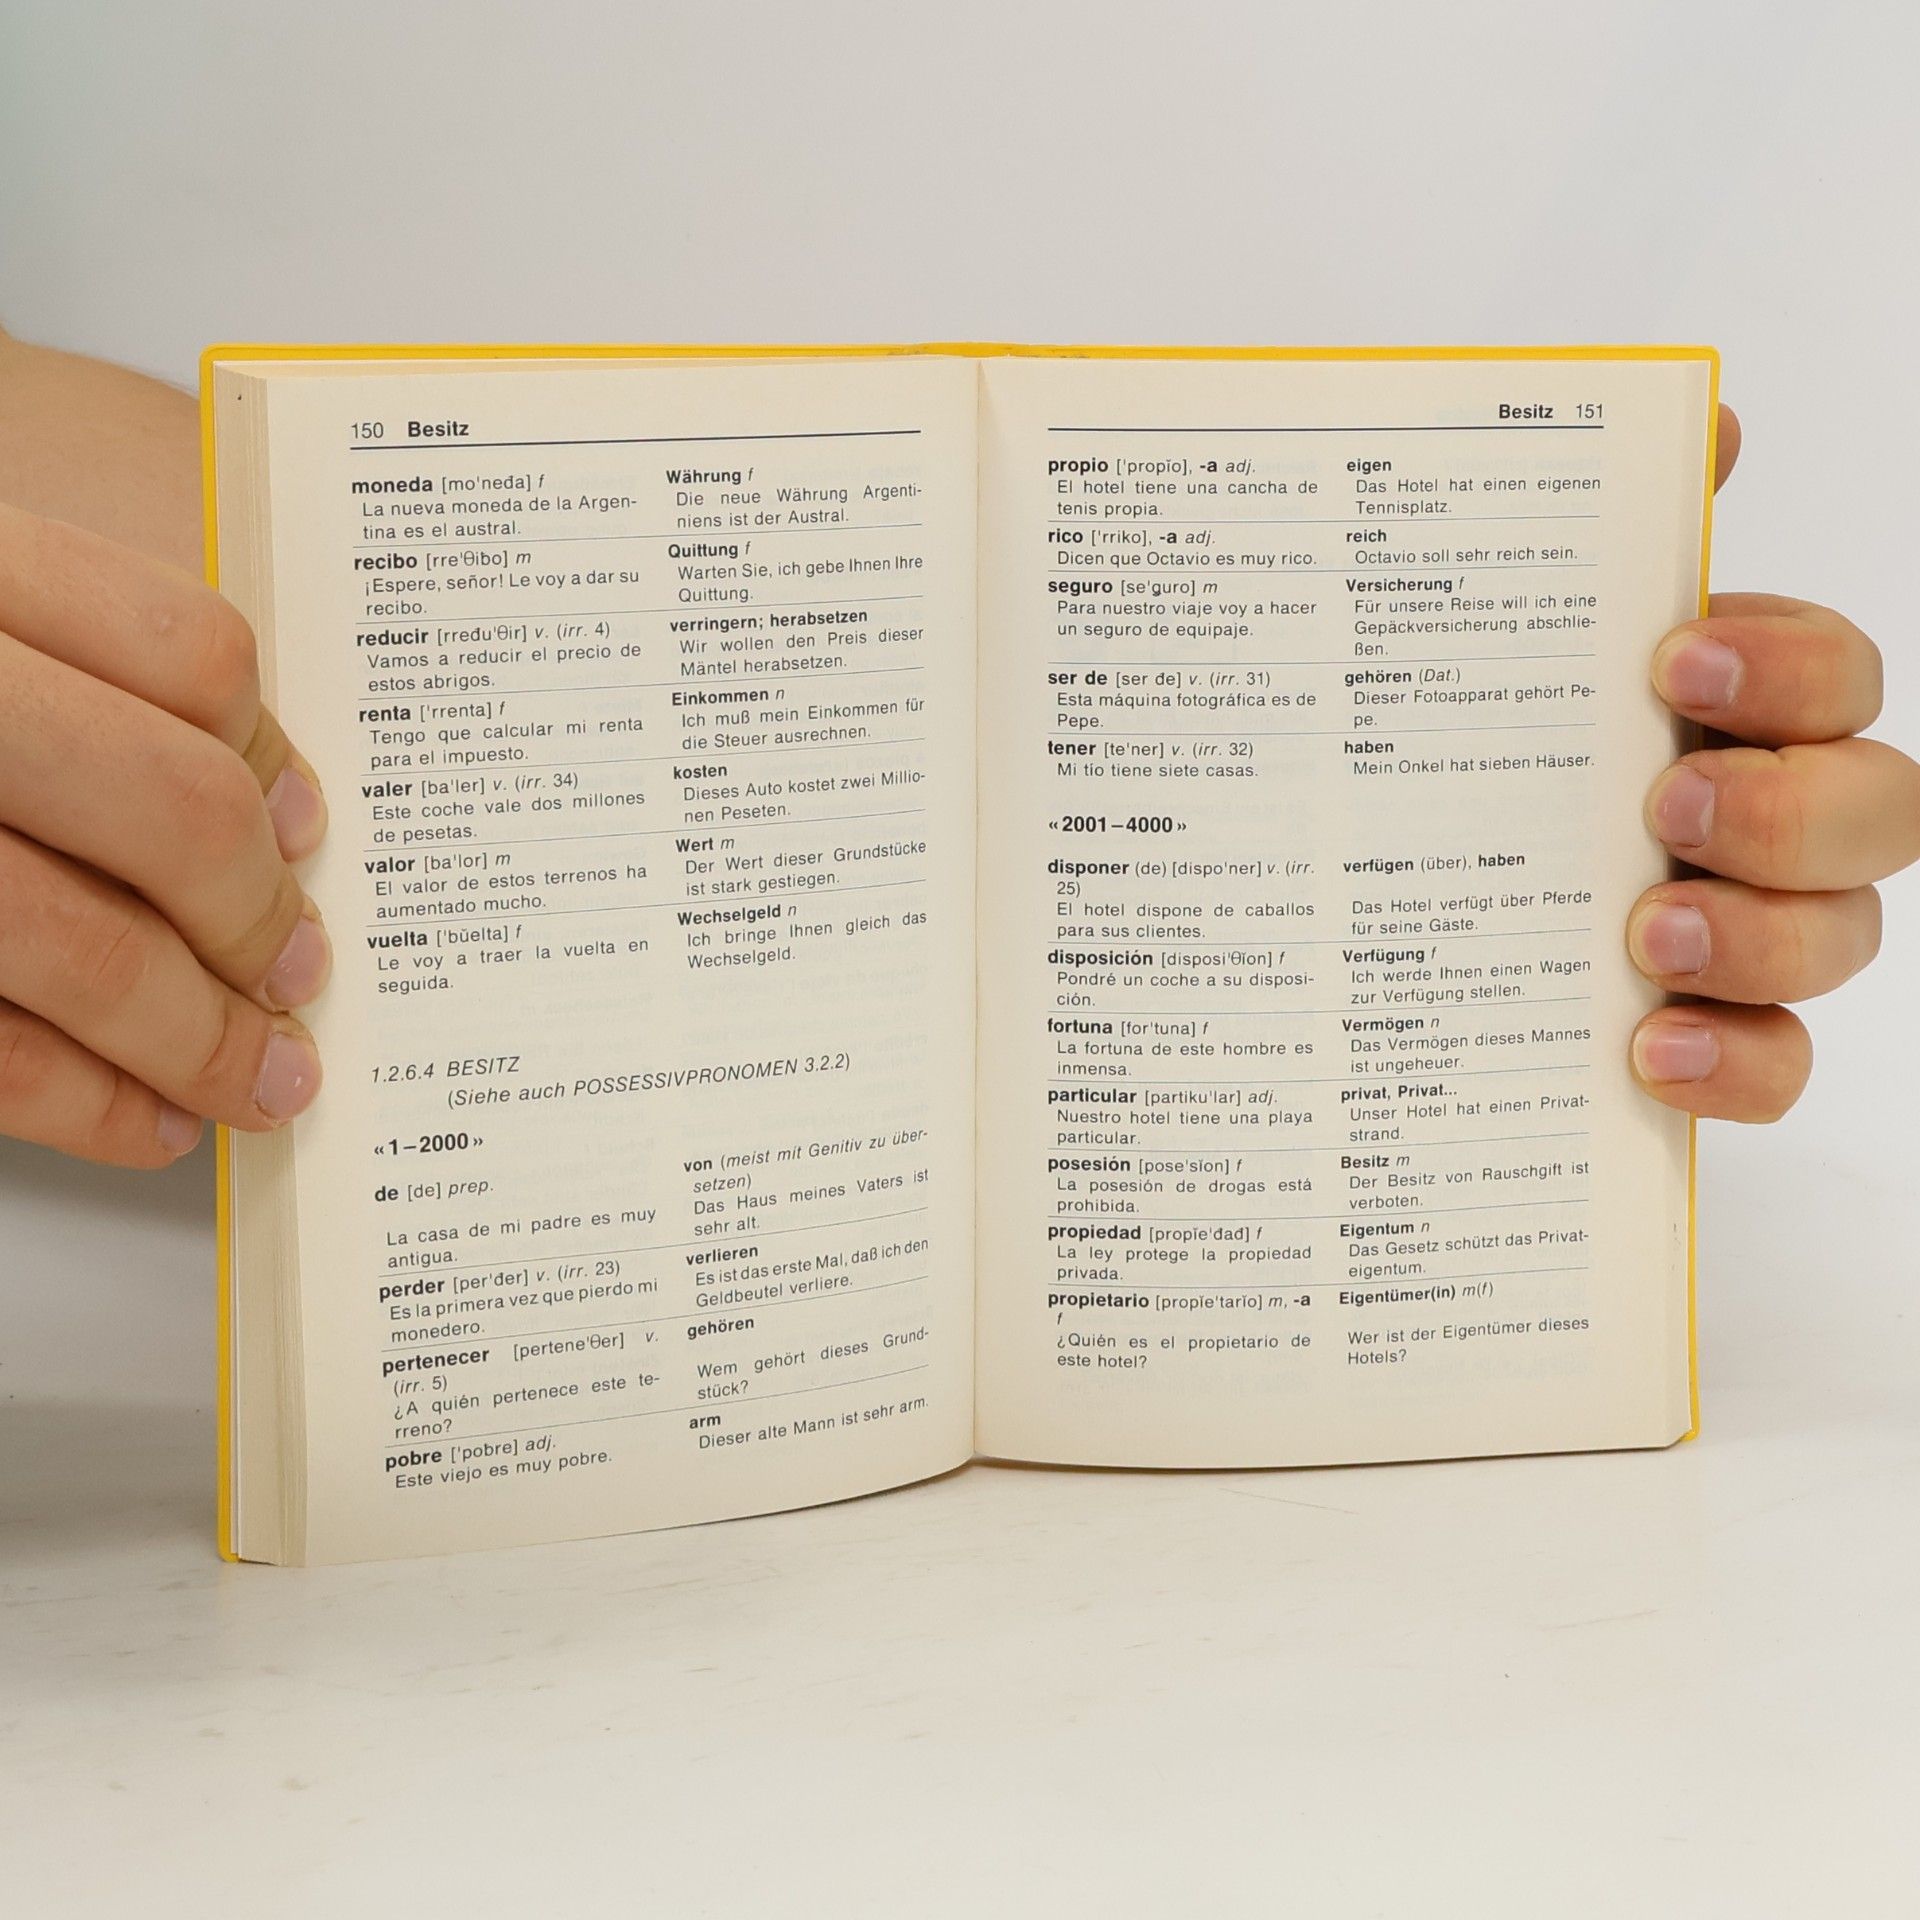 150 Besitz
moneda [mo'neđa] f
La nueva moneda de la Argen-
tina es el austral.
Währung f
Die neue Währung Argenti-
niens ist der Austral.
recibo [rre'θibo] m
¡Espere, señor! Le voy a dar su
recibo.
Quittung f
Warten Sie, ich gebe Ihnen Ihre
Quittung.
reducir [rređu'θir] v. (irr. 4)
Vamos a reducir el precio de
estos abrigos.
verringern; herabsetzen
Wir wollen den Preis dieser
Mäntel herabsetzen.
renta ['rrenta] f
Tengo que calcular mi renta
para el impuesto.
Einkommen n
Ich muß mein Einkommen für
die Steuer ausrechnen.
valer [ba'ler] v. (irr. 34)
Este coche vale dos millones
de pesetas.
kosten
Dieses Auto kostet zwei Millio-
nen Peseten.
valor [ba'lor] m
El valor de estos terrenos ha
aumentado mucho.
Wert m
Der Wert dieser Grundstücke
ist stark gestiegen.
vuelta ['bŭelta] f
Le voy a traer la vuelta en
seguida.
Wechselgeld n
Ich bringe Ihnen gleich das
Wechselgeld.
1.2.6.4 BESITZ
(Siehe auch POSSESSIVPRONOMEN 3.2.2)
«1–2000»
de [de] prep.
La casa de mi padre es muy
antigua.
von (meist mit Genitiv zu über-
setzen)
Das Haus meines Vaters ist
sehr alt.
perder [per'đer] v. (irr. 23)
Es la primera vez que pierdo mi
monedero.
verlieren
Es ist das erste Mal, daß ich den
Geldbeutel verliere.
pertenecer [pertene'θer] v.
(irr. 5)
¿A quién pertenece este te-
rreno?
gehören
Wem gehört dieses Grund-
stück?
pobre ['pobre] adj.
Este viejo es muy pobre.
arm
Dieser alte Mann ist sehr arm.
Besitz 151
propio ['propĭo], -a adj.
El hotel tiene una cancha de
tenis propia.
eigen
Das Hotel hat einen eigenen
Tennisplatz.
rico ['rriko], -a adj.
Dicen que Octavio es muy rico.
reich
Octavio soll sehr reich sein.
seguro [se'guro] m
Para nuestro viaje voy a hacer
un seguro de equipaje.
Versicherung f
Für unsere Reise will ich eine
Gepäckversicherung abschlie-
ßen.
ser de [ser đe] v. (irr. 31)
Esta máquina fotográfica es de
Pepe.
gehören (Dat.)
Dieser Fotoapparat gehört Pe-
pe.
tener [te'ner] v. (irr. 32)
Mi tío tiene siete casas.
haben
Mein Onkel hat sieben Häuser.
«2001–4000»
disponer (de) [dispo'ner] v. (irr.
25)
El hotel dispone de caballos
para sus clientes.
verfügen (über), haben
Das Hotel verfügt über Pferde
für seine Gäste.
disposición [disposi'θĭon] f
Pondré un coche a su disposi-
ción.
Verfügung f
Ich werde Ihnen einen Wagen
zur Verfügung stellen.
fortuna [for'tuna] f
La fortuna de este hombre es
inmensa.
Vermögen n
Das Vermögen dieses Mannes
ist ungeheuer.
particular [partiku'lar] adj.
Nuestro hotel tiene una playa
particular.
privat, Privat...
Unser Hotel hat einen Privat-
strand.
posesión [pose'sĭon] f
La posesión de drogas está
prohibida.
Besitz m
Der Besitz von Rauschgift ist
verboten.
propiedad [propĭe'đađ] f
La ley protege la propiedad
privada.
Eigentum n
Das Gesetz schützt das Privat-
eigentum.
propietario [propĭe'tarĭo] m, -a
f
¿Quién es el propietario de
este hotel?
Eigentümer(in) m(f)
Wer ist der Eigentümer dieses
Hotels?